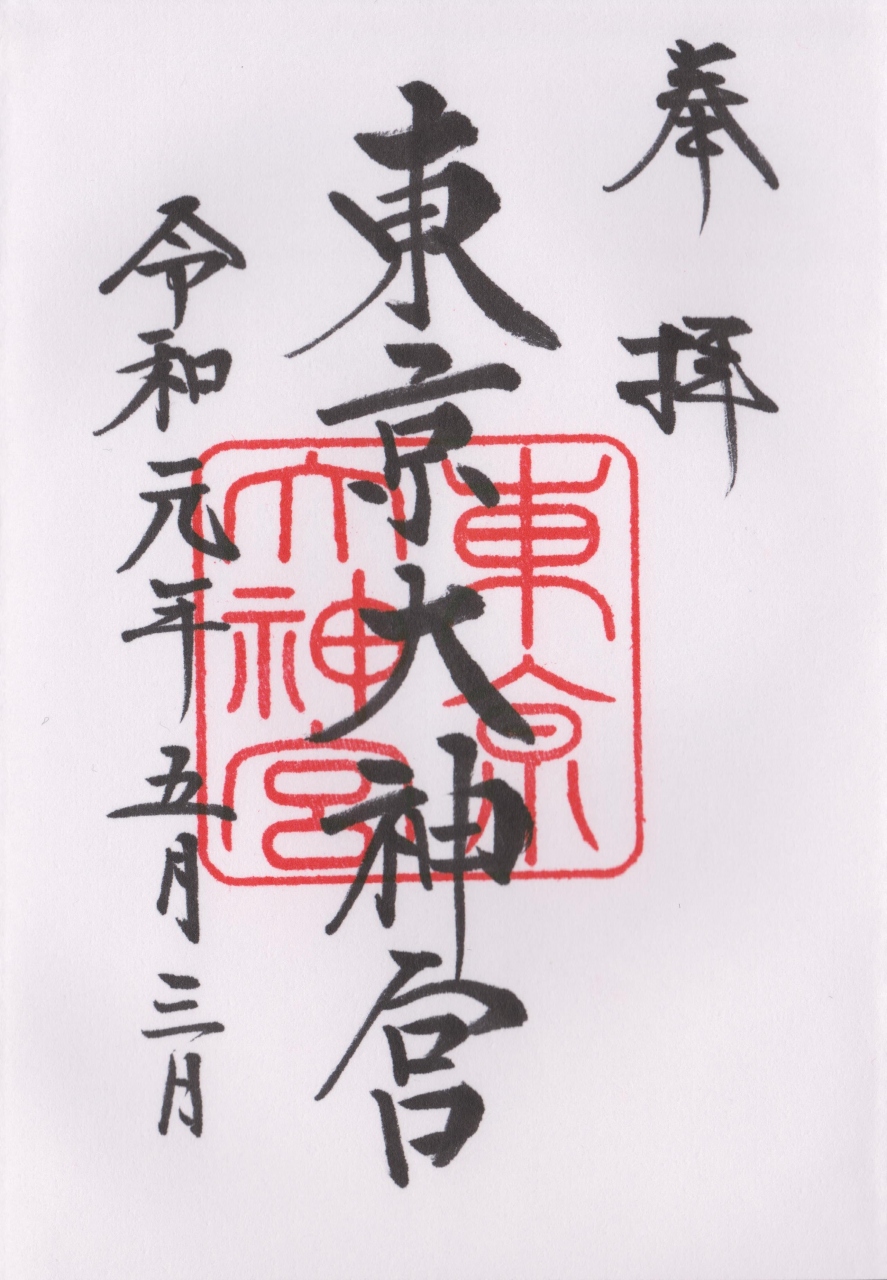 奉拝
東京大神宮
令和元年五月三日
東京
大神宮